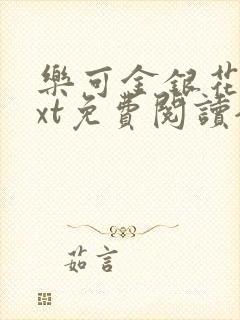 樂可金銀花
xt免費閱讀
茹言